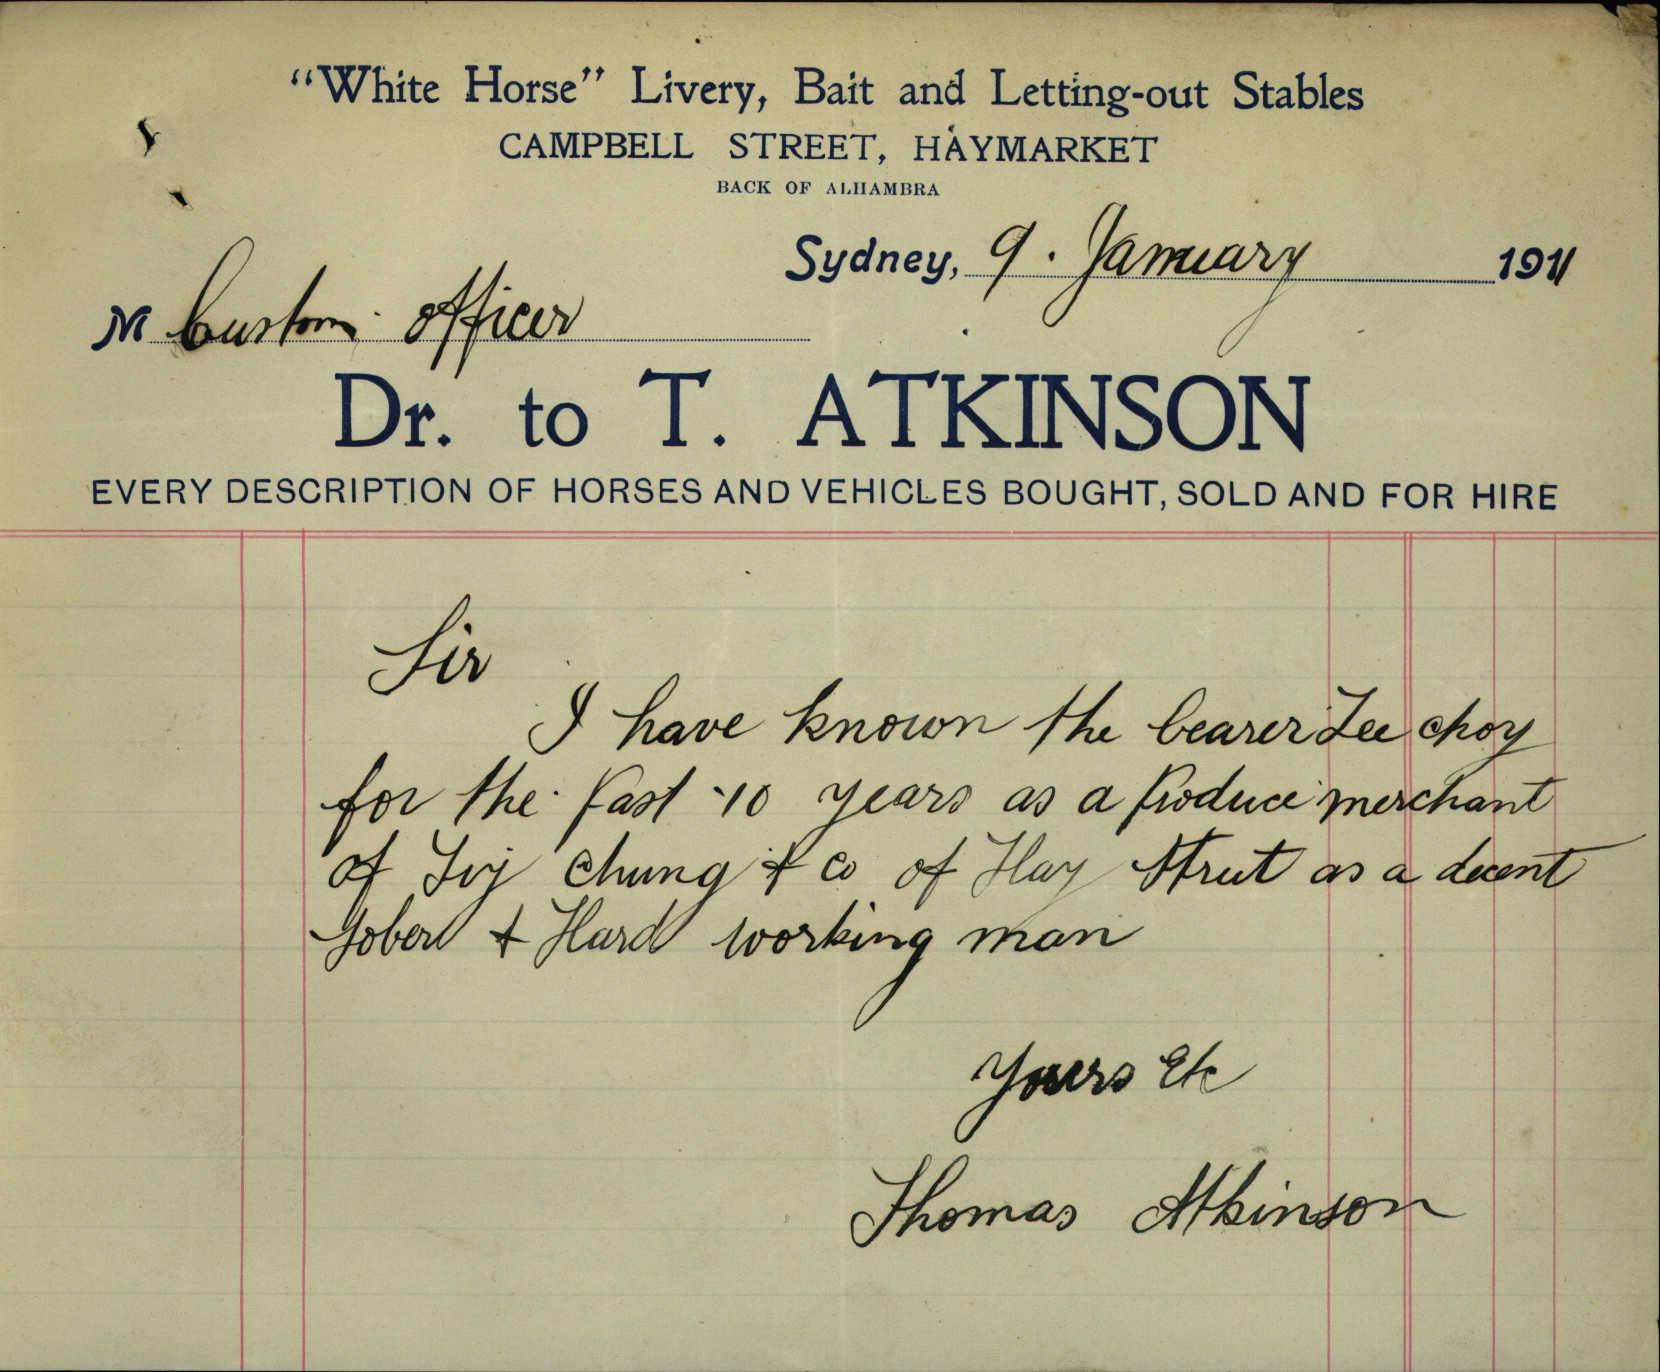 "White Horse" Livery, Bait and Letting-out Stables
CAMPBELL STREET, HAYMARKET
BACK OF ALHAMBRA
Sydney, 9. January 1911
M Custom officer
Dr. to T. ATKINSON
EVERY DESCRIPTION OF HORSES AND VEHICLES BOUGHT, SOLD AND FOR HIRE
Sir
I have known the bearer Lee choy
for the past 10 years as a produce merchant
of chung & co of Hay Street as a decent
sober & Hard working man
Yours Etc
Thomas Atkinson